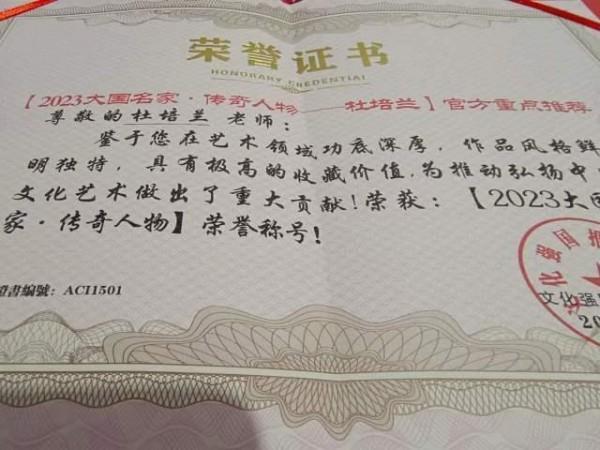 荣誉证书
HONORARY CREDENTIAL
【2023大国名家·传奇人物——杜培兰】官方重点推荐
尊敬的杜培兰老师：
鉴于您在艺术领域功底深厚，作品风格鲜
明独特，具有极高的收藏价值，为推动弘扬中
文化艺术做出了重大贡献！荣获：【2023大国
家·传奇人物】荣誉称号！
證書編號：ACI1501
化强国推
文化强
20